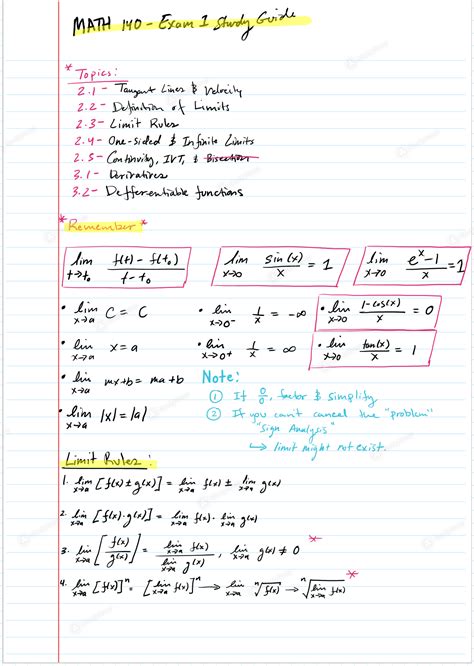 MATH 140 - Exam 1 Study Guide
* Topics:
2.1 - Tangent Lines & Velocity
2.2 - Definition of Limits
2.3 - Limit Rules
2.4 - One-sided & Infinite Limits
2.5 - Continuity, IVT, & Bisection
3.1 - Derivatives
3.2 - Defferentiable functions
* Remember *
lim t→t₀ f(t) - f(t₀) / t - t₀
lim x→0 sin(x)/x = 1
lim x→0 (eˣ-1)/x = 1
• lim x→a C = C
• lim x→0⁻ 1/x = -∞
• lim x→0 (1-cos(x))/x = 0
• lim x→a x = a
• lim x→0⁺ 1/x = ∞
• lim x→0 tan(x)/x = 1
• lim x→a mx+b = ma+b
• lim x→a |x| = |a|
Note:
① If 0/0, factor & simplify
② If you can't cancel the "problem"
"sign Analysis"
↳ limit might not exist.
Limit Rules:
1. lim x→a [f(x) ± g(x)] = lim x→a f(x) ± lim x→a g(x)
2. lim x→a [f(x)·g(x)] = lim x→a f(x) · lim x→a g(x)
3. lim x→a [f(x)/g(x)] = lim x→a f(x) / lim x→a g(x), lim x→a g(x) ≠ 0 *
4. lim x→a [f(x)]ⁿ = [lim x→a f(x)]ⁿ → lim x→a ⁿ√f(x) → ⁿ√lim x→a f(x) *